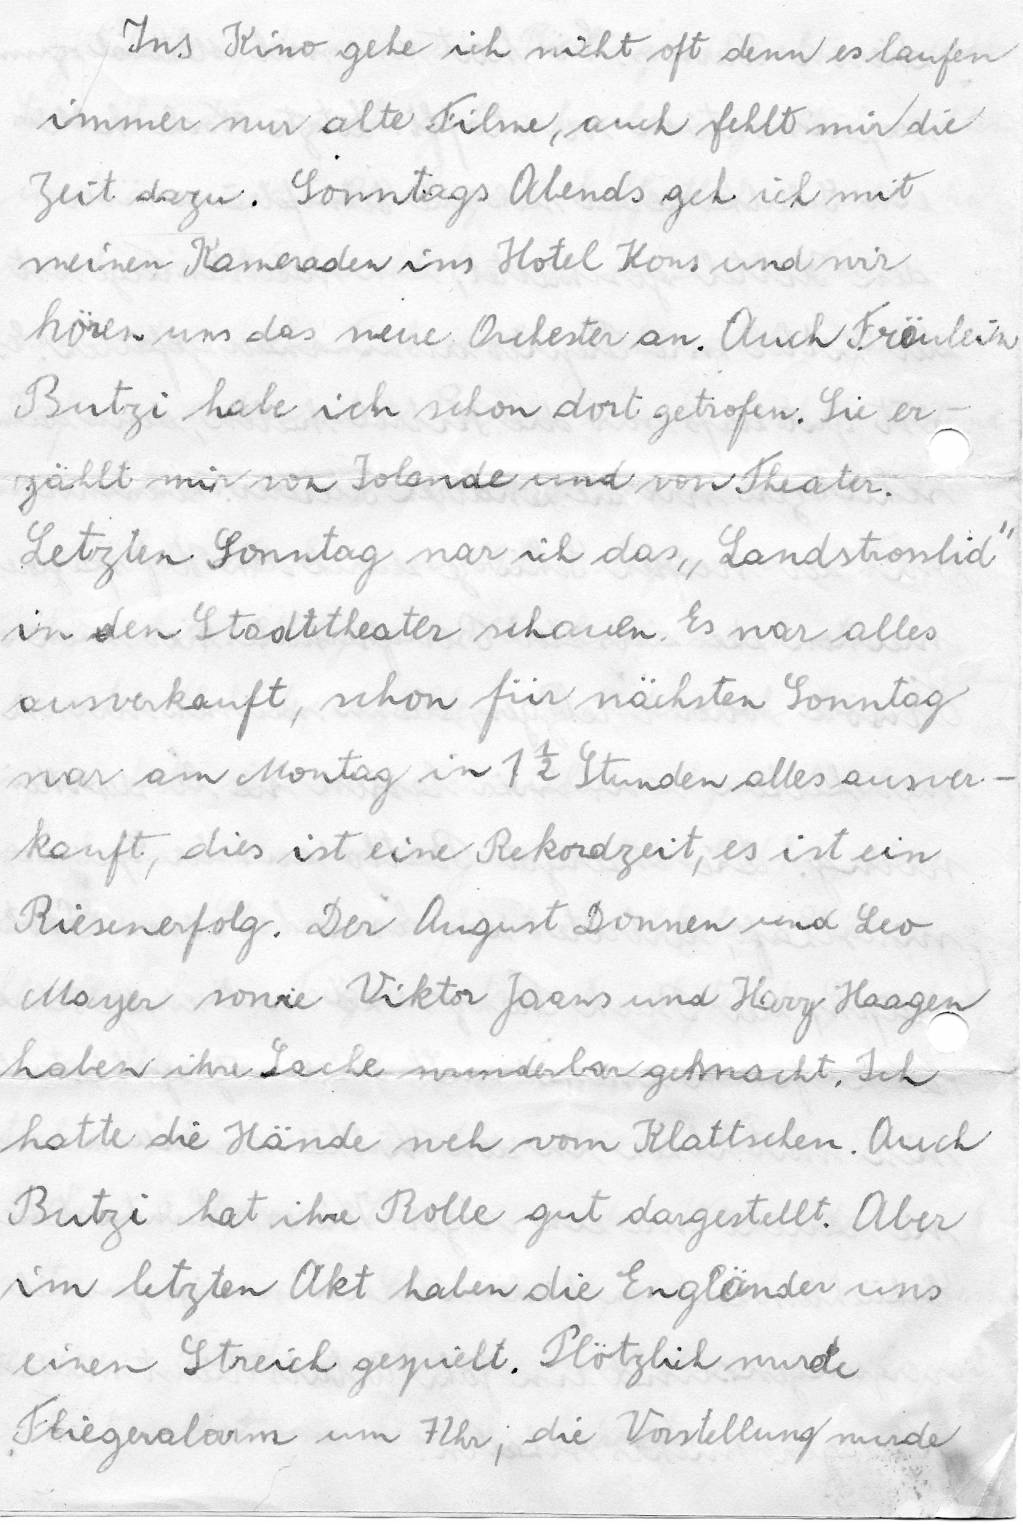 Ins Kino gehe ich nicht oft denn es laufen
immer nur alte Filme, auch fehlt mir die
Zeit dazu. Sonntags Abends geh ich mit
meinen Kameraden ins Hotel Kons und wir
hören uns das neue Orchester an. Auch Fräulein
Butzi habe ich schon dort getrofen. Sie er-
zählt mir von Iolande und von Theater.
Letzten Sonntag war ich das „Landstrooslid"
in den Stadttheater schauen. Es war alles
ausverkauft, schon für nächsten Sonntag
war am Montag in 1 1/2 Stunden alles ausver-
kauft, dies ist eine Rekordzeit, es ist ein
Riesenerfolg. Der August Donnen und Leo
Mayer sowie Viktor Jaans und Harry Haagen
haben ihre Sache wunderbar gemacht. Ich
hatte die Hände weh vom Klattschen. Auch
Butzi hat ihre Rolle gut dargestellt. Aber
im letzten Akt haben die Engländer uns
einen Streich gespielt. Plötzlich wurde
Fliegeralarm um 7 Uhr, die Vorstellung wurde